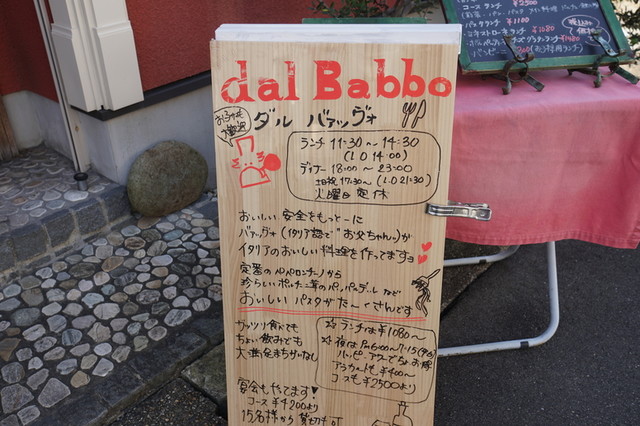 コースランチ ¥2500
¥1100
¥1080
dal Babbo
おこさまも
大歓迎
ダル バァッヴォ
ランチ 11:30〜14:30
(L.O 14:00)
ディナー 18:00〜23:00
土日祝 17:30〜 (L.O 21:30)
火曜日 定休
おいしい 安全をもっとーに
バァッヴォ (イタリア語で "お父ちゃん")が
イタリアのおいしい料理を作ってますョ
定番の ペペロンチーノから
珍らしいポルチーニ茸の パッパルデル など
おいしい パスタが た〜くさんです
ガッツリ食べでも
ちょい飲みでも
大満足まちがいなし
☆ ランチは ¥1080〜
☆ 夜は
アラカルトも ¥400〜
コースも ¥2500より
宴会もやってます
コース ¥4200より
15名様から 貸切も可